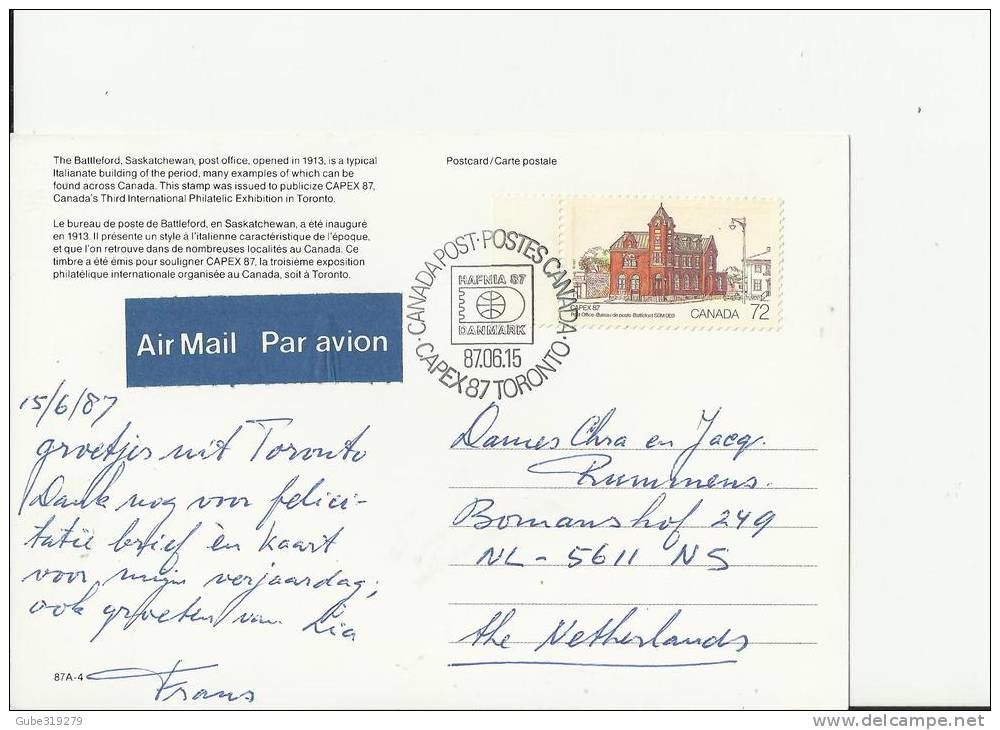 The Battleford, Saskatchewan, post office, opened in 1913, is a typical
Italianate building of the period, many examples of which can be
found across Canada. This stamp was issued to publicize CAPEX 87,
Canada's Third International Philatelic Exhibition in Toronto.
Le bureau de poste de Battleford, en Saskatchewan, a été inauguré
en 1913. Il présente un style à l'italienne caractéristique de l'époque,
et que l'on retrouve dans de nombreuses localités au Canada. Ce
timbre a été émis pour souligner CAPEX 87, la troisième exposition
philatélique internationale organisée au Canada, soit à Toronto.
Postcard/Carte postale
Air Mail Par avion
CANADA POST · POSTES CANADA
HAFNIA 87
DANMARK
87.06.15
CAPEX 87 TORONTO
CAPEX 87
Post Office-Bureau de poste-Battleford
CANADA 72
15/6/87
groetjes uit Toronto
Dank nog voor felici-
tatie brief èn kaart
voor mijn verjaardag,
ook groeten van Lia
Frans
Dames Chra en Jacq.
Rummens.
Bomanshof 249
NL - 5611 NS
the Netherlands
87A-4
Gube319279
delcampe.net